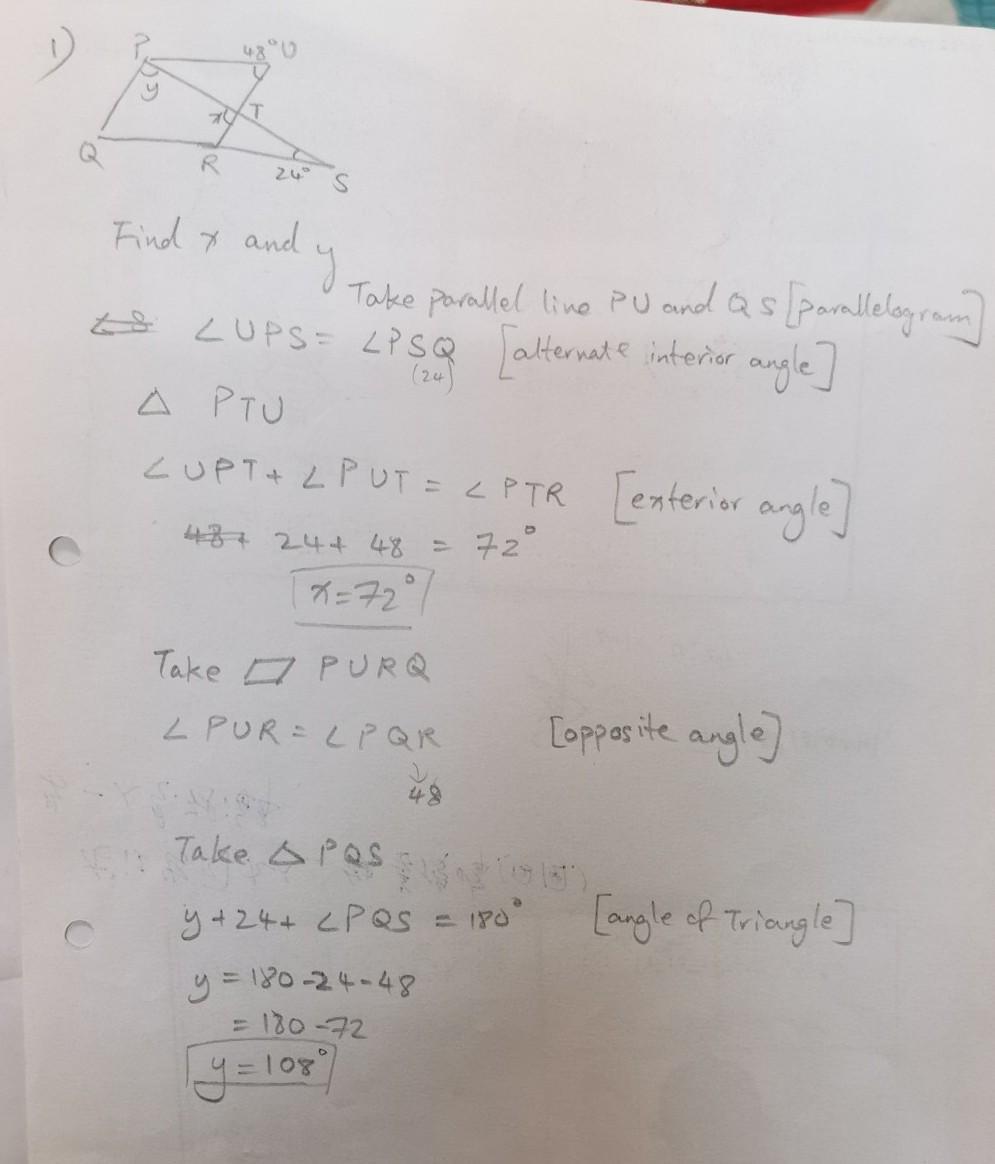 1)
P 48° U
y
x T
Q R 24° S
Find x and y
Take parallel line PU and QS [parallelogram]
∠UPS = ∠PSQ [alternate interior angle]
(24)
△ PTU
∠UPT + ∠PUT = ∠PTR [exterior angle]
48+ 24 + 48 = 72°
x = 72°
Take ▱ PURQ
∠PUR = ∠PQR [opposite angle]
↓
48
Take △ PQS
y + 24 + ∠PQS = 180° [angle of Triangle]
y = 180 - 24 - 48
= 180 - 72
y = 108°